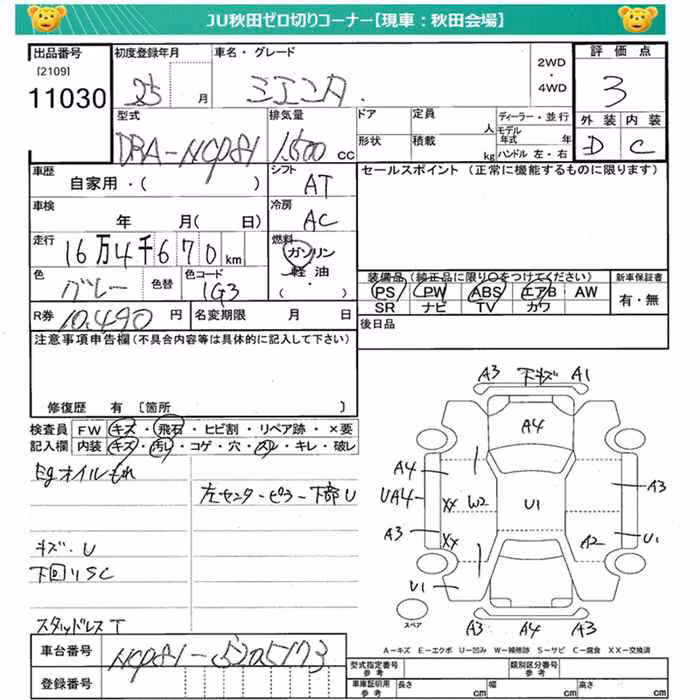 JU秋田ゼロ切りコーナー【現車：秋田会場】
出品番号 初度登録年月 車名・グレード 2WD・4WD 評価点
[2109]
11030 25 月 シエンタ. 3
型式 排気量 ドア 定員 人 ディーラー・並行 外装 内装
DBA-NCP81 1.500 cc 形状 積載 kg モデル年式 年 ハンドル 左・右 D C
車歴 シフト セールスポイント (正常に機能するものに限ります)
自家用・( ) AT
車検 冷房
年 月(日) AC
走行 燃料
16万4千670km ガソリン
軽油・( )
色 色替 色コード 装備品(純正品に限り○をつけてください) 新車保証書
グレー 1G3 PS PW ABS エアB AW 有・無
SR ナビ TV カワ
R券 10.490円 名変期限 月 日 後日品
注意事項申告欄(不具合内容等は具体的に記入して下さい)
修復歴 有 [箇所 ]
検査員 FW キズ・飛石・ヒビ割・リペア跡・×要
記入欄 内装 キズ・汚れ・コゲ・穴・スレ・キレ・破レ
Egオイルもれ
左センターピラー下部U
キズ・U
下回りSC
スタッドレスT
A3 下キズ A1
A4
A4
UA4 XX W2 U1 A3
A3 XX A2 U1
U1
スペア A3 A4 A3
A-キズ E-エクボ U-凹み W-補修跡 S-サビ C-腐食 XX-交換済
車台番号 NCP81-5205173
登録番号
型式指定番号 参考 類別区分番号 参考
車庫証明用 参考 長さ cm 幅 cm 高さ cm